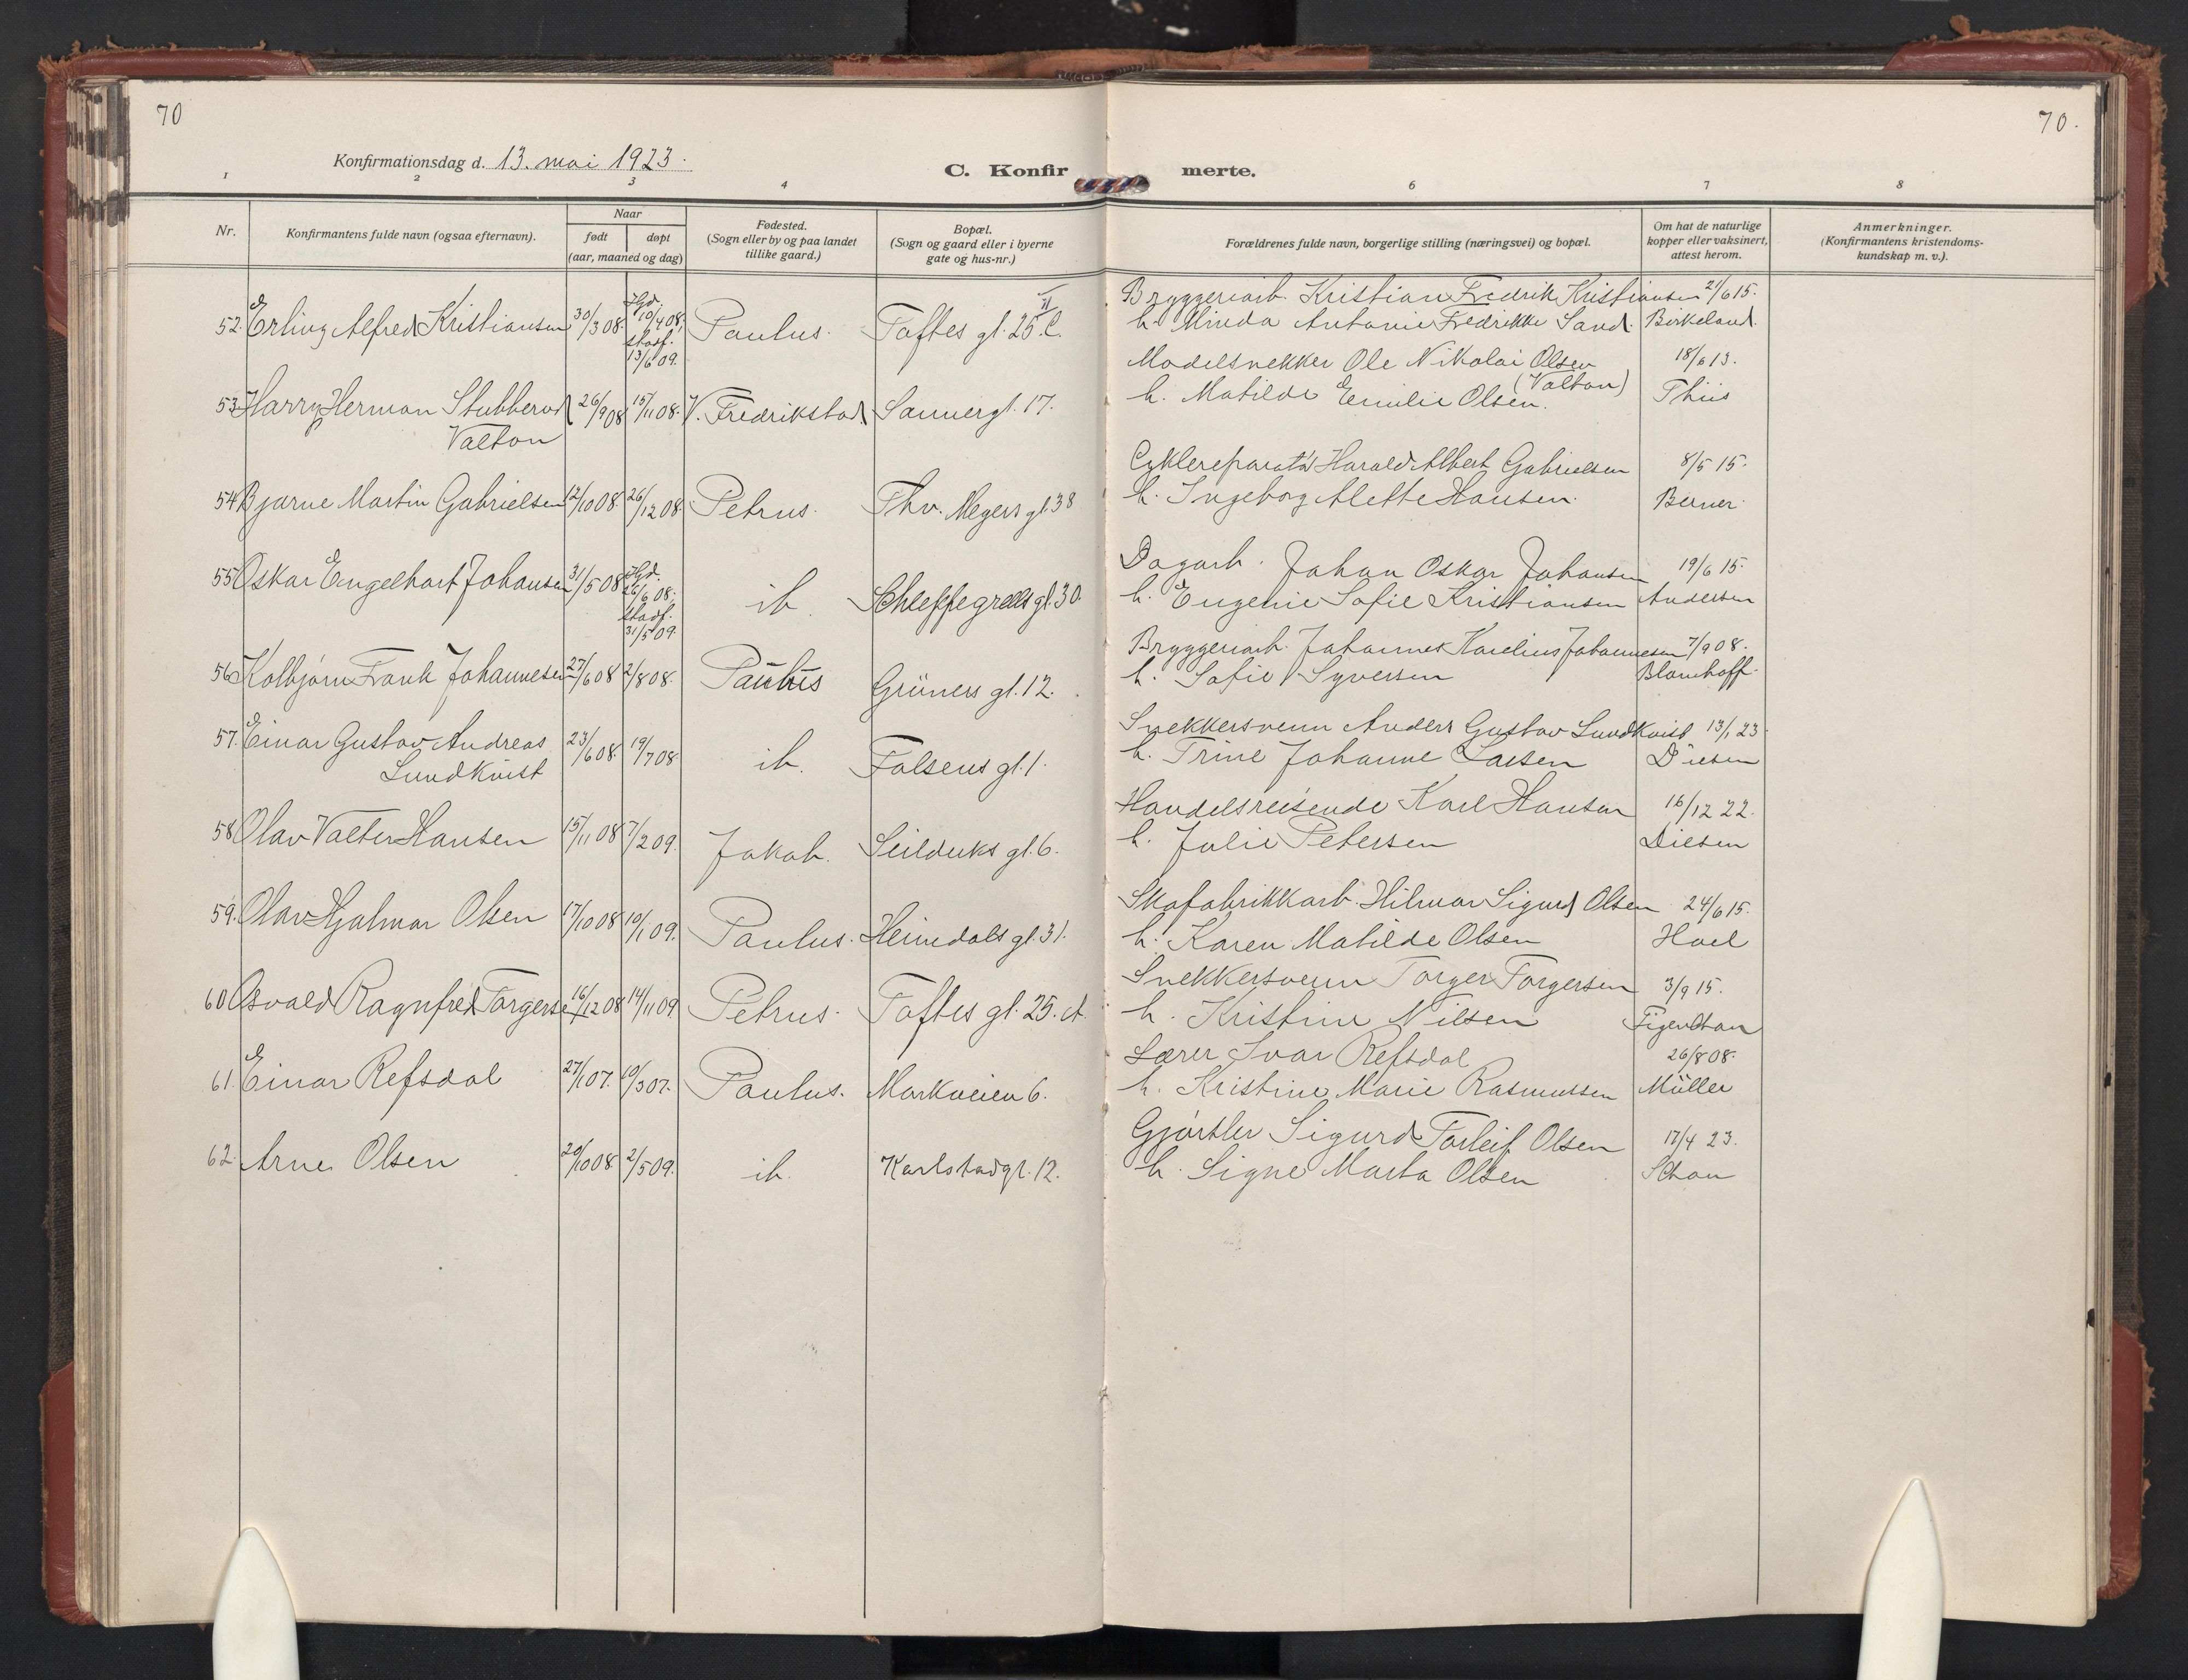 70
70.
Konfirmationsdag d. 13. mai 1923.
C. Konfir merte.
1 2 3 4 6 7 8
Nr.
Konfirmantens fulde navn (ogsaa efternavn).
Naar
født døpt
(aar, maaned og dag)
Fødested.
(Sogn eller by og paa landet
tillike gaard.)
Bopæl.
(Sogn og gaard eller i byerne
gate og hus-nr.)
Forældrenes fulde navn, borgerlige stilling (næringsvei) og bopæl.
Om hat de naturlige
kopper eller vaksinert,
attest herom.
Anmerkninger.
(Konfirmantens kristendoms-
kundskap m. v.).
52. Erling Alfred Kristiansen 30/3 08. Hjd. 10/4 08, stadf. 13/6 09. Paulus. Toftes gt. 25 C. II
Bryggeriarb. Kristian Fredrik Kristiansen 21/6 15.
h. Minda Antonie Fredrikke Sand. Birkeland.
53. Harry Herman Stubberud 26/9 08 15/11 08. V. Fredrikstad Sannergt. 17.
Valton
Modelsnekker Ole Nikolai Olsen 18/6 13.
(Valton)
h. Matilde Emilie Olsen. Thiis
54 Bjarne Martin Gabrielsen 12/10 08. 26/12 08. Petrus. Thv. Meyers gt. 38
Cyklereparatør Harald Albert Gabrielsen 8/5 15.
h. Ingeborg Alette Hansen. Berner.
55 Oskar Engelhart Johansen 31/5 08 Hjd. 26/6 08; stadf. 31/5 09. ib. Schleppegrells gt. 30.
Dagarb. Johan Oskar Johansen 19/6 15.
h. Eugenie Sofie Kristiansen Andersen
56 Kolbjørn Frank Johannesen 27/6 08 2/8 08. Paulus Grüners gt. 12.
Bryggeriarb. Johannes Karelius Johannesen 7/9 08.
h. Sofie Syversen Blomhoff.
57. Einar Gustav Andreas 23/6 08. 19/7 08 ib. Falsens gt. 1.
Lundkvist
Snekkersvenn Anders Gustav Lundkvist 13/1 23.
h. Trine Johanne Larsen Diesen
58 Olav Valter Hansen 15/11 08 7/2 09. Jakob. Seilduks gt. 6.
Handelsreisende Karl Hansen 16/12 22.
h. Julie Petersen Diesen
59. Olav Hjalmar Olsen 17/10 08 10/1 09. Paulus. Heimdals gt. 31.
Skofabrikkarb. Hilmar Sigurd Olsen 24/6 15.
h. Karen Matilde Olsen Hoel
60 Osvald Ragnfred Torgersen 16/12 08 14/11 09 Petrus. Toftes gt. 25. A.
Snekkersvenn Torger Torgersen 3/9 15.
h. Kristine Nilsen
61. Einar Refsdal 27/1 07. 10/3 07. Paulus. Markveien 6.
Lærer Ivar Refsdal 26/8 08.
h. Kristine Marie Rasmussen Müller
62. Arne Olsen 20/10 08. 2/5 09. ib. Karlstadgt. 12.
Gjørtler Sigurd Torleif Olsen 17/4 23.
h. Signe Marta Olsen Schou